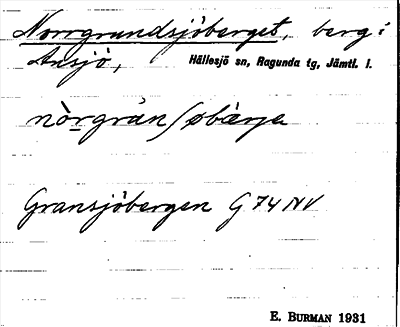 Norrgrundsjöberget, berg i
Ansjö, Hällesjö sn, Ragunda tg, Jämtl. l.
nòrgrånʃøbærje
Gransjöbergen G 74 NV
E. BURMAN 1931